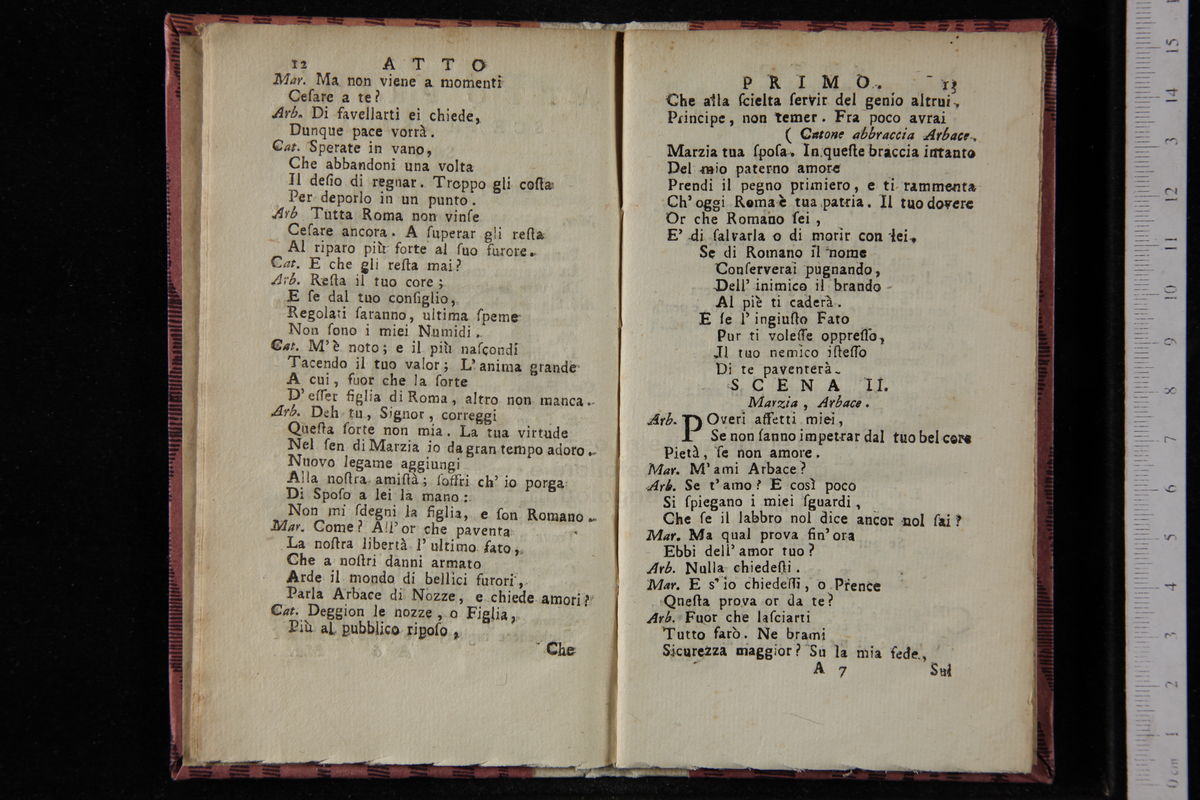 12 ATTO
Mar. Ma non viene a momenti
Ceſare a te?
Arb. Di favellarti ei chiede,
Dunque pace vorrà.
Cat. Sperate in vano,
Che abbandoni una volta
Il deſio di regnar. Troppo gli coſta
Per deporlo in un punto.
Arb Tutta Roma non vinſe
Ceſare ancora. A ſuperar gli reſta
Al riparo più forte al ſuo furore.
Cat. E che gli reſta mai?
Arb. Reſta il tuo core;
E ſe dal tuo conſiglio,
Regolati ſaranno, ultima ſpeme
Non ſono i miei Numidi.
Cat. M'è noto; e il più naſcondi
Tacendo il tuo valor; L'anima grande
A cui, fuor che la ſorte
D'eſſer figlia di Roma, altro non manca.
Arb. Deh tu, Signor, correggi
Queſta ſorte non mia. La tua virtude
Nel ſen di Marzia io da gran tempo adoro.
Nuovo legame aggiungi
Alla noſtra amiſtà; ſoffri ch'io porga
Di Spoſo a lei la mano:
Non mi ſdegni la figlia, e ſon Romano.
Mar. Come? All'or che paventa
La noſtra libertà l'ultimo fato,
Che a noſtri danni armato
Arde il mondo di bellici furori,
Parla Arbace di Nozze, e chiede amori?
Cat. Deggion le nozze, o Figlia,
Più al pubblico ripoſo,
Che
PRIMO. 13
Che alla ſcielta ſervir del genio altrui.
Principe, non temer. Fra poco avrai
( Catone abbraccia Arbace.
Marzia tua ſpoſa. In queſte braccia intanto
Del mio paterno amore
Prendi il pegno primiero, e ti rammenta
Ch'oggi Roma è tua patria. Il tuo dovere
Or che Romano ſei,
E' di ſalvarla o di morir con lei.
Se di Romano il nome
Conſerverai pugnando,
Dell' inimico il brando
Al piè ti caderà.
E ſe l'ingiuſto Fato
Pur ti voleſſe oppreſſo,
Il tuo nemico iſteſſo
Di te paventerà.
SCENA II.
Marzia, Arbace.
Arb. POveri affetti miei,
Se non ſanno impetrar dal tuo bel core
Pietà, ſe non amore.
Mar. M'ami Arbace?
Arb. Se t'amo? E così poco
Si ſpiegano i miei ſguardi,
Che ſe il labbro nol dice ancor nol ſai?
Mar. Ma qual prova fin'ora
Ebbi dell'amor tuo?
Arb. Nulla chiedeſti.
Mar. E s'io chiedeſſi, o Prence
Queſta prova or da te?
Arb. Fuor che laſciarti
Tutto farò. Ne brami
Sicurezza maggior? Su la mia fede,
A 7 Sul